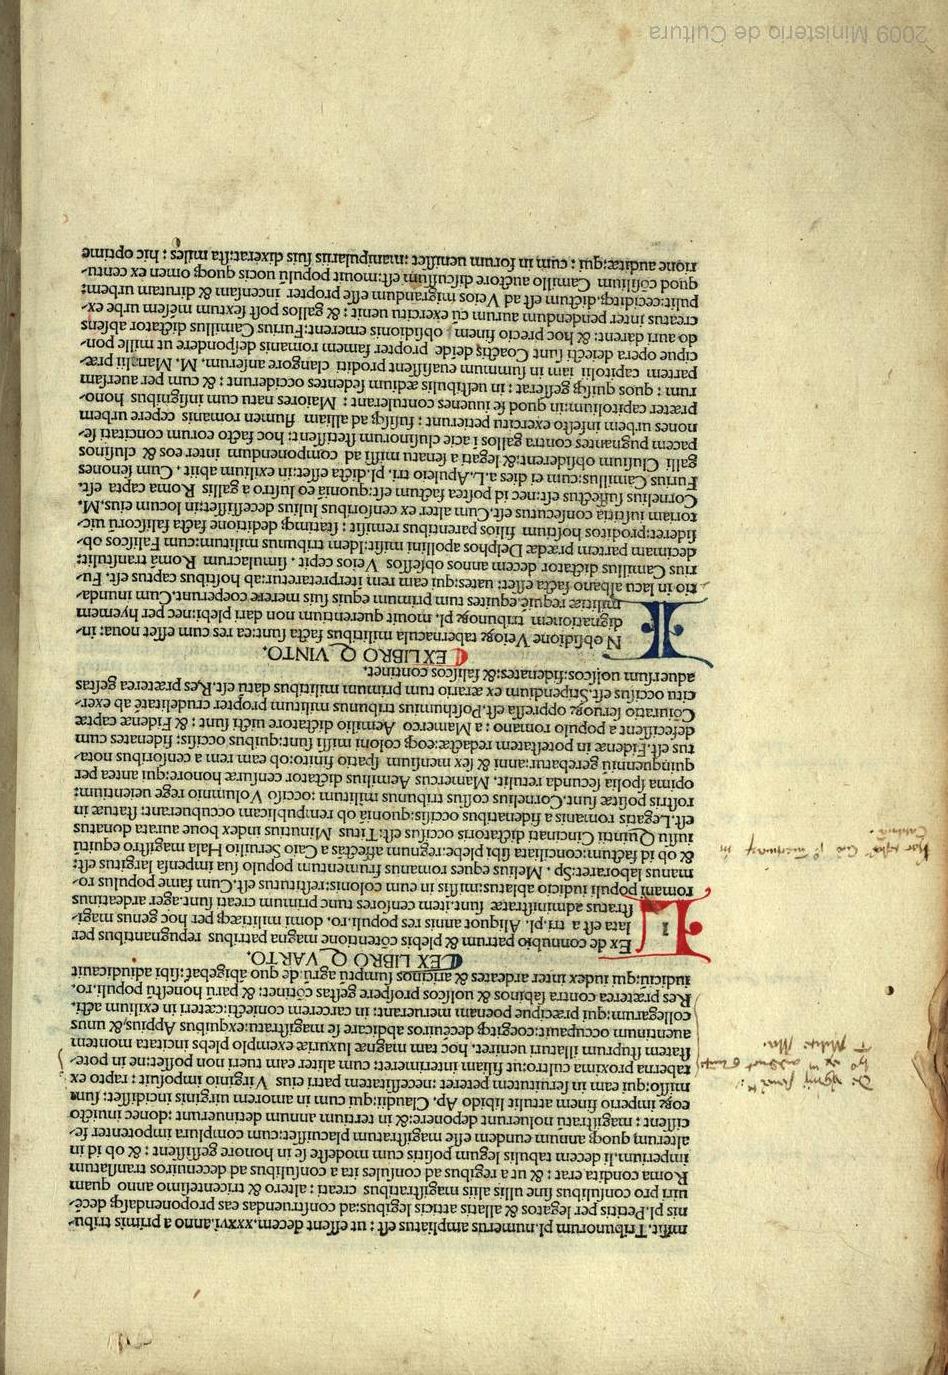 misit. Tribunorum pl. numerus ampliatus est: ut essent decem. xxxvi. anno a primis tribu-
nis pl. Petitis per legatos & allatis atticis legibus: ad construendas eas proponendasq; decē-
uiri pro consulibus sine ullis aliis magistratibus creati: altero & tricentesimo anno quam
Roma condita erat: & ut a regibus ad consules ita a consulibus ad decemuiros translatum
imperium. ii decem tabulis legum positis cum modeste se in honore gessissent: & ob id in
alterum quoq; annum eundem esse magistratum placuisset: cum complura impotenter fe-
cissent: magistratū noluerunt deponere: & in tertium annum detinuerunt: donec inuiso
eoꝝ imperio finem attulit libido Ap. Claudii: qui cum in amorem uirginis incidisset: sum
misso: qui eam in seruitutem peteret: necessitatem patri eius Virginio imposuit: rapto ex
taberna proxima cultro: ut filiam interimeret: cum aliter eam tueri non posset: ne in pote-
statem stuprum illaturi ueniret. hoc tam magnæ luxuriæ exemplo plebs incitata montem
auentinum occupauit: coegitq; decēuiros abdicare se magistratu: ex quibus Appius, & unus
collegarum: qui præcipue poenam meruerant: in carcerem coniecti: cæteri in exilium acti.
Res præterea contra sabinos & uolscos prospere gestas cōtinet: & parū honestū populi. ro.
iudiciū: qui iudex inter ardeates & aricinos sumptꝰ agrū: de quo abigebāt: sibi adiudicauit
EX LIBRO QVARTO.
Ex de connubio patrum & plebis cōtentione magna patribus repugnantibus per
lata est a tri. pl. Aliquot annis res populi. ro. domi militiæq; per hoc genus magi-
stratus administratæ sunt. item censores tunc primum creati sunt. ager ardeatinus
romani populi iudicio ablatus: missis in eum colonis: restitutus est. Cum fame populus ro-
manus laboraret: Sp. Melius eques romanus frumentum populo sua impensa largitus est:
& ob id factum: conciliata sibi plebe: regnum affectās a Caio Seruilio Hala magistro equitū
iussu Quintii Cincinati dictatoris occisus est: Titus Minutius index boue aurata donatus
est. Legatis romanis a fidenatibus occisis: quoniā ob rempublicam occubuerant: statuæ in
rostris positæ sunt. Cornelius cossus tribunus militum: occiso Volumnio rege ueientium:
opima spolia secunda retulit. Mamercus Aemilius dictator censuræ honorē: qui antea per
quinquenniū gerebatur: anni & sex mensium spatio finito: ob eam rem a censoribus nota-
tus est. Fidenæ in potestatem redactæ: eoq; coloni missi sunt: quibus occisis: fidenates cum
defecissent a populo romano: a Mamerco Aemilio dictatore uicti sunt: & Fidenæ captæ
Cōiuratio seruoꝝ oppressa est. Posthumius tribunus militum propter crudelitatē ab exer-
citu occisus est. Stipendium ex ærario tum primum militibus datū est. Res præterea gestas
aduersum uolscos: fidenates: & faliscos continet.
EX LIBRO QVINTO.
N obsidione Veioꝝ tabernacula militibus facta sunt: ea res cum esset noua: in-
dignationem tribunoꝝ pl. mouit querentium non dari plebi: nec per hyemem
militiæ requiē. equites tum primum equis suis merere coeperunt. Cum inunda-
tio in lacu albano facta esset: uates: qui eam rem iterpretaretur: ab hostibus captus est. Fu-
rius Camillus dictator decem annos obsessos Veios cepit. simulacrum Romā transtulit:
decimam partem prædæ Delphos apollini misit: Idem tribunus militum: cum Faliscos ob-
sideret: proditos hostium filios parentibus remisit: statimq; deditione facta faliscorū uic-
toriam iustitia consecutus est. Cum alter ex censoribus Iulius decessisset: in locum eius. M.
Cornelius suffectus est: nec id postea factum est: quoniā eo lustro a gallis Roma capta est.
Furius Camillus: cum ei dies a. L. Apuleio tri. pl. dicta esset: in exilium abiit. Cum senones
galli Clusium obsiderent: & legati a senatu missi ad componendum inter eos & clusinos
pacem pugnantes contra gallos i acie clusinorum stetissent: hoc facto eorum concitati se-
nones urbem infesto exercitu petierunt: fusisq; ad alliam flumen romanis cepere urbem
præter capitolium: in quod se iuuenes contulerant: Maiores natu cum insignibus hono-
rum: quos quisq; gesserat: in uestibulis ædium sedentes occiderunt: & cum per auersam
partem capitolii iam in summum euasissent proditi clangore anserum. M. Manlii præ-
cipue opera deiecti sunt Coactis deide propter famem romanis despondere ut mille pon-
do auri darent: & hoc precio finem obsidionis emerent: Furius Camillus dictator absens
creatus inter pendendum aurum cū exercitu uenit: & gallos post sextum mēsem urbe ex-
pulit: ceciditq;. dictum est ad Veios migrandum esse propter incensam & dirutam urbem:
quod cōsilium Camillo auctore discussum est: mouit populū uocis quoq; omen ex centu-
rione auditæ: qui: cum in forum uenisset: manipulariis suis dixerat: sta miles: hic optime
2009 Ministerio de Cultura